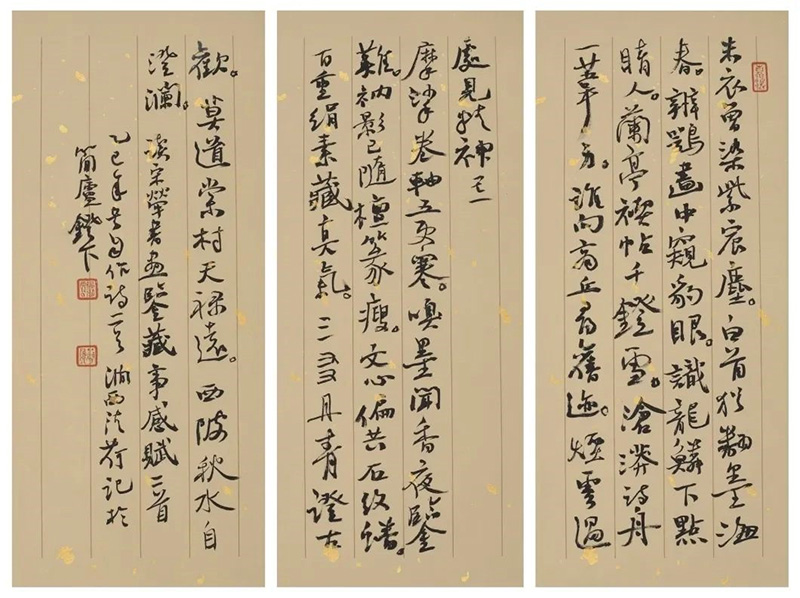 朱衣曾染紫宸塵。白首猶翻墨海
春。辨鶚畫中窺豹眼。識龍鱗下點
睛人。蘭亭禊帖千鐙雪。滄漭詩舟
一葦身。誰向商丘尋舊迹。煙雲過
處見精神 其一
摩挲卷軸五更寒。嗅墨聞香夜鑒
難。衲影已隨檀篆瘦。文心偏共石紋蟠。
百重絹素藏真氣。丹青證古
歡。莫道棠村天祿遠。西陂秋水自
澄瀾。讀宋犖書畫鑒藏事感賦二首
乙巳年書自作詩二首 湘西 荷記於
簡廬鐙下